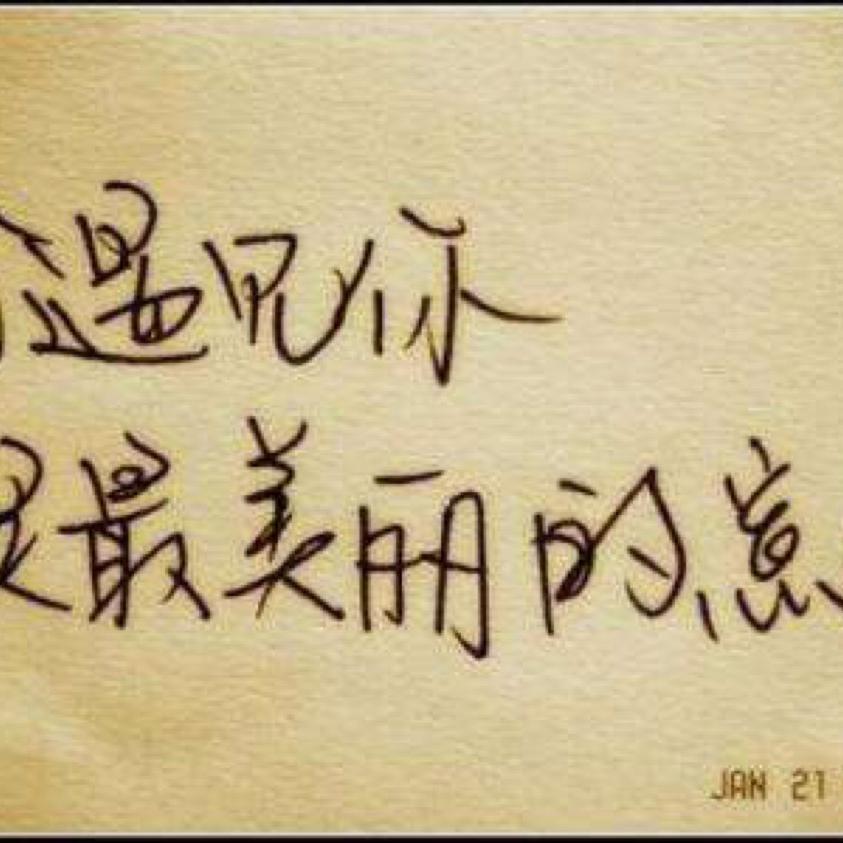 遇见你
是最美丽的意
JAN 21